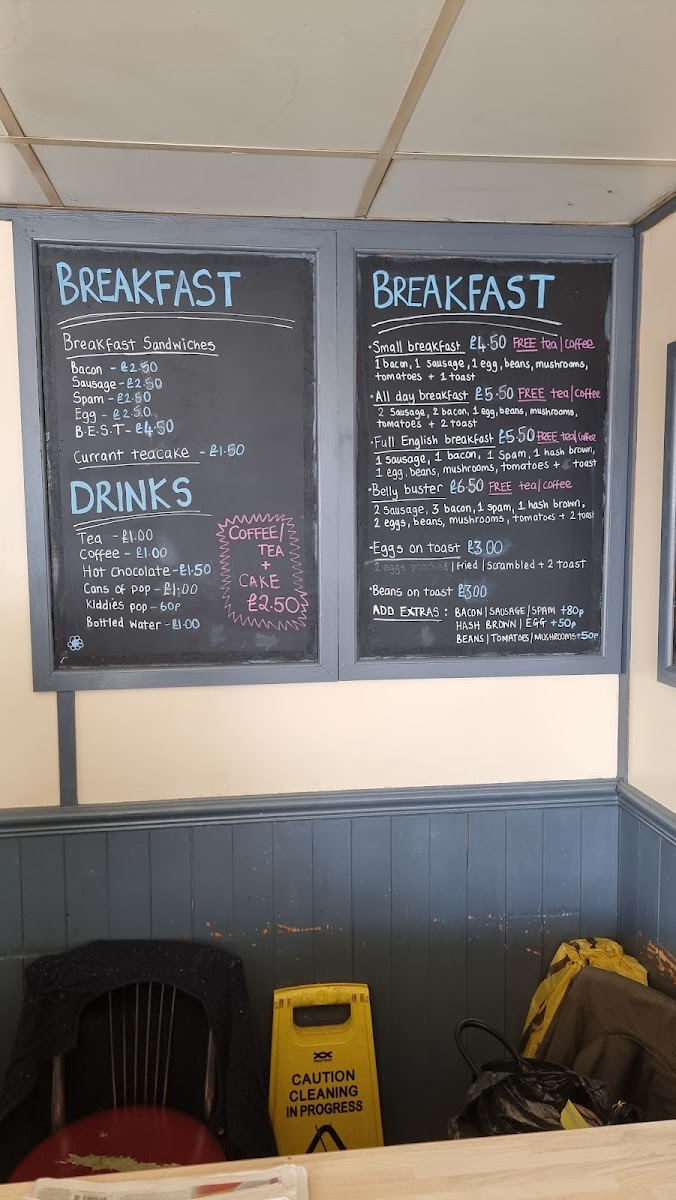 BREAKFAST
Breakfast Sandwiches
Bacon - £2.50
Sausage - £2.50
Spam - £2.50
Egg - £2.50
B.E.S.T - £4.50
Currant teacake - £1.50
DRINKS
Tea - £1.00
Coffee - £1.00
Hot chocolate - £1.50
Cans of pop - £1.00
Kiddies pop - 60p
Bottled water - £1.00
COFFEE/
TEA
+
CAKE
£2.50
BREAKFAST
• Small breakfast £4.50 FREE tea/coffee
1 bacon, 1 sausage, 1 egg, beans, mushrooms,
tomatoes + 1 toast
• All day breakfast £5.50 FREE tea/coffee
2 Sausage, 2 bacon, 1 egg, beans, mushrooms,
tomatoes + 2 toast
• Full English breakfast £5.50 FREE tea/coffee
1 sausage, 1 bacon, 1 Spam, 1 hash brown,
1 egg, beans, mushrooms, tomatoes + toast
• Belly buster £6.50 FREE tea/coffee
2 Sausage, 3 bacon, 1 spam, 1 hash brown,
2 eggs, beans, mushrooms, tomatoes + 2 toast
• Eggs on toast £3.00
2 eggs poached/fried/scrambled + 2 toast
• Beans on toast £3.00
ADD EXTRAS : BACON/SAUSAGE/SPAM +80p
HASH BROWN / EGG +50p
BEANS/TOMATOES/MUSHROOMS +50p
CAUTION
CLEANING
IN PROGRESS